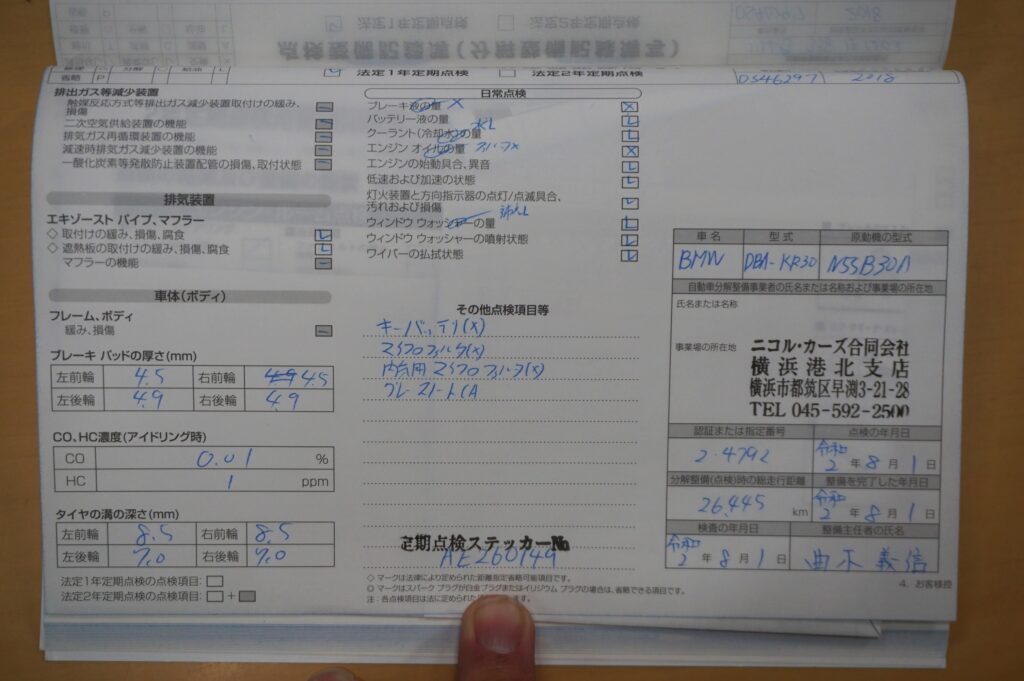 省略 P
法定1年定期点検
法定2年定期点検
DS46297
2018
排出ガス等減少装置
触媒反応方式等排出ガス減少装置取付けの緩み、
損傷
二次空気供給装置の機能
排気ガス再循環装置の機能
減速時排気ガス減少装置の機能
一酸化炭素等発散防止装置配管の損傷、取付状態
排気装置
エキゾースト パイプ、マフラー
◇ 取付けの緩み、損傷、腐食 L
◇ 遮熱板の取付けの緩み、損傷、腐食 L
マフラーの機能
車体(ボディ)
フレーム、ボディ
緩み、損傷
ブレーキ パッドの厚さ(mm)
左前輪 4.5 右前輪 4.9 4.5
左後輪 4.9 右後輪 4.9
CO、HC濃度(アイドリング時)
CO 0.01 %
HC 1 ppm
タイヤの溝の深さ(mm)
左前輪 8.5 右前輪 8.5
左後輪 7.0 右後輪 7.0
法定1年定期点検の点検項目:
法定2年定期点検の点検項目: +
日常点検
ブレーキ液の量 X X
バッテリー液の量 L
クーラント(冷却水)の量 L
エンジン オイルの量 X
エンジンの始動具合、異音 L
低速および加速の状態 L
灯火装置と方向指示器の点灯/点滅具合、
汚れおよび損傷 L
ウィンドウ ウォッシャーの量 L
ウィンドウ ウォッシャーの噴射状態 L
ワイパーの払拭状態 L
その他点検項目等
キーバッテリ(X)
マイクロフィルタ(X)
内気用マイクロフィルタ(X)
定期点検ステッカーNo
AE260149
◇ マークは法律により定められた距離指定省略可能項目です。
◎ マークはスパーク プラグが白金プラグまたはイリジウム プラグの場合は、省略できる項目です。
注:各点検項目は法に定められた
車名 型式 原動機の型式
BMW DBA-KR30 N55B30A
自動車分解整備事業者の氏名または名称および事業場の所在地
氏名または名称
事業場の所在地
ニコル・カーズ合同会社
横浜港北支店
横浜市都筑区早渕3-21-28
TEL 045-592-2500
認証または指定番号 点検の年月日
2-4792 令和 2 年 8 月 1 日
分解整備(点検)時の総走行距離 整備を完了した年月日
26,445 km 令和 2 年 8 月 1 日
検査の年月日 整備主任者の氏名
令和 2 年 8 月 1 日 曲木 義信
4. お客様控